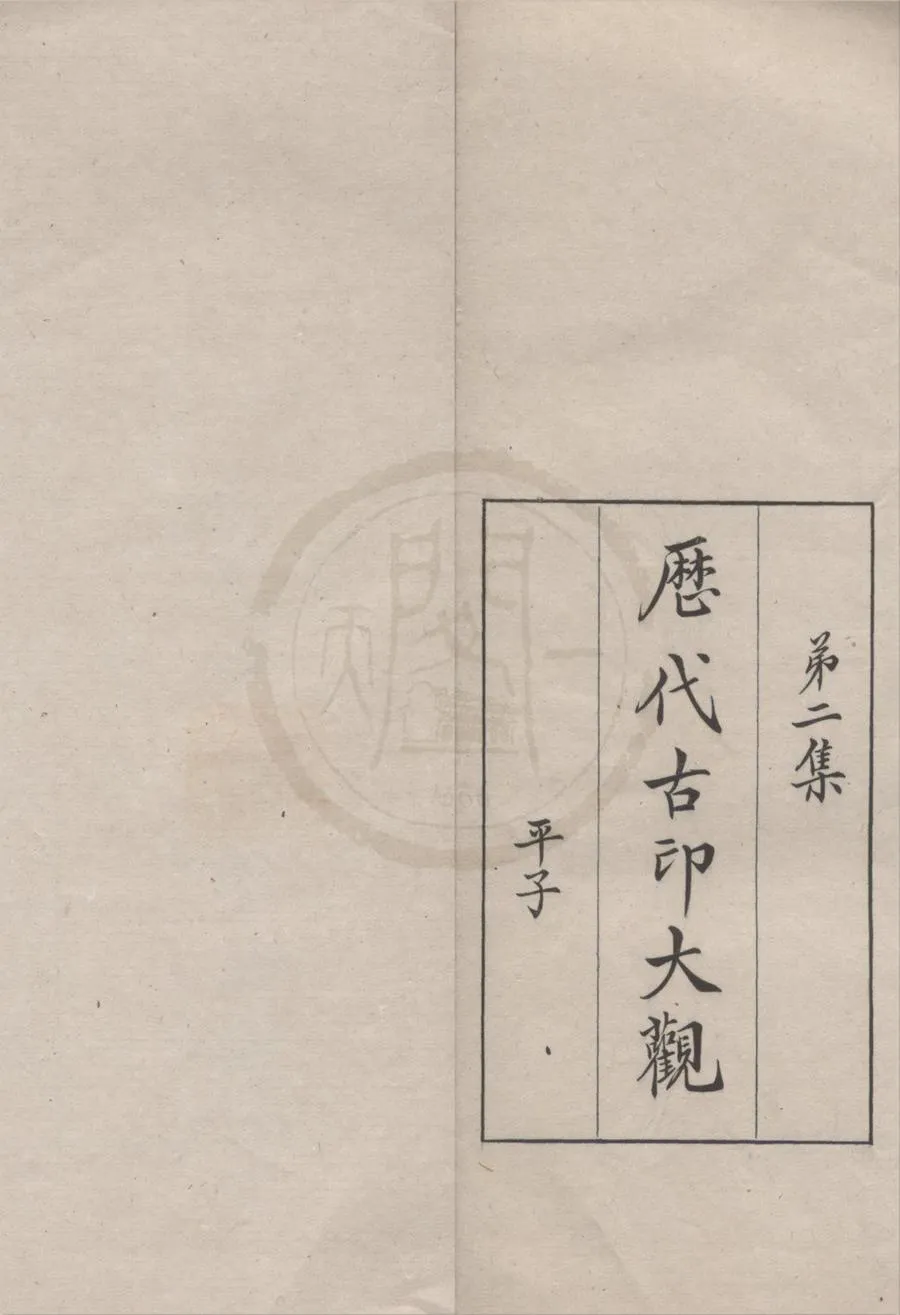 弟二集
歷代古印大觀
平子